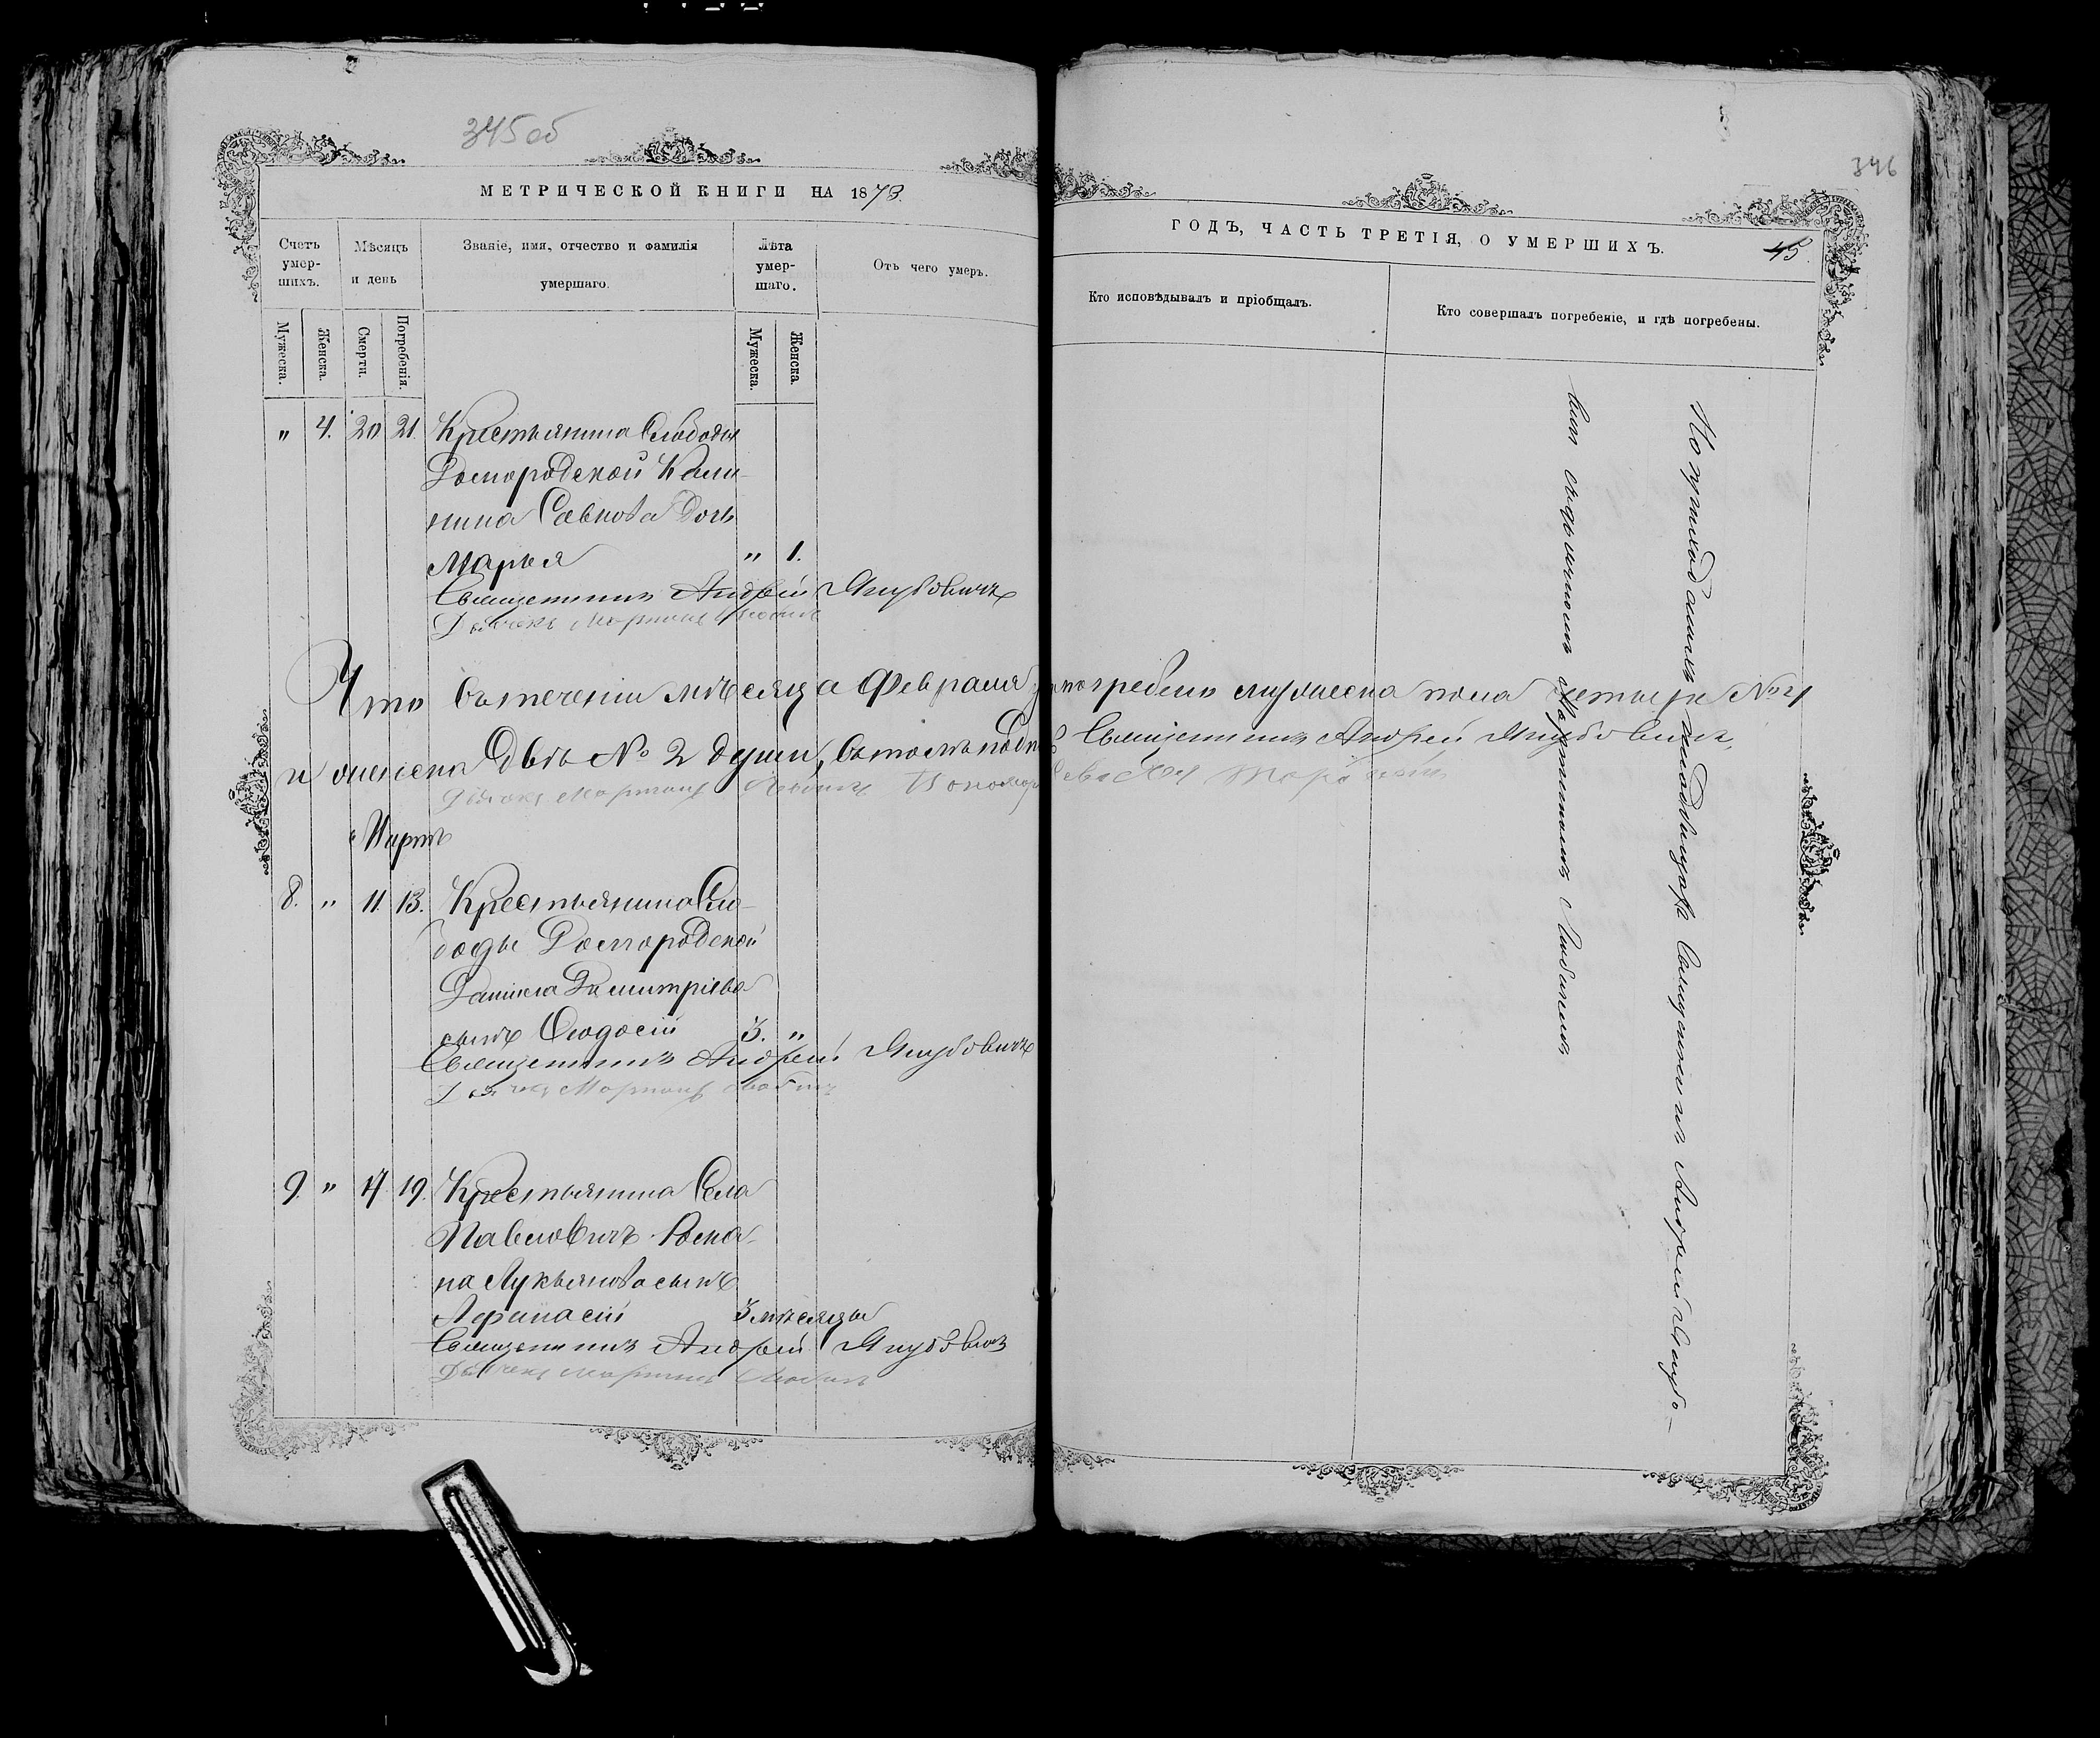 345об
МЕТРИЧЕСКОЙ КНИГИ НА 1873.
Счетъ умер-шихъ.
Мѣсяцъ и день
Званіе, имя, отчество и фамилія умершаго.
Лѣта умер-шаго.
Отъ чего умеръ.
Мужеска.
Женска.
Смерти.
Погребенія.
Мужеска.
Женска.
" 4. 20 21. Крестьянина Слободы
Домородской Кали-
нина Савкова Дочь
Марья " 1.
Священникъ Андрей Якубовичъ
Дьячекъ Мартинъ
Что въ теченіи мѣсяца Февраля погребено мужеска пола четыре №4
и женска Двѣ № 2 души, въ томъ Священникъ Андрей Якубовичъ,
Дьячекъ Мартинъ
Мартъ
8. " 11. 13. Крестьянина Сло-
боды Домородской
Даниила Димитріева
сынъ Ѳеодосій 3. "
Священникъ Андрей Якубовичъ
Дьячекъ Мартинъ
9. " 17. 19. Крестьянина Села
Павловичъ Рома-
на Лукьянова сынъ
Афанасій 3 мѣсяцы
Священникъ Андрей Якубовичъ
Дьячекъ Мартинъ
346
ГОДЪ, ЧАСТЬ ТРЕТІЯ, О УМЕРШИХЪ.
45.
Кто исповѣдывалъ и пріобщалъ.
Кто совершалъ погребеніе, и гдѣ погребены.
На приходскомъ кладбищѣ Священникъ Андрей Якубо-
вичъ